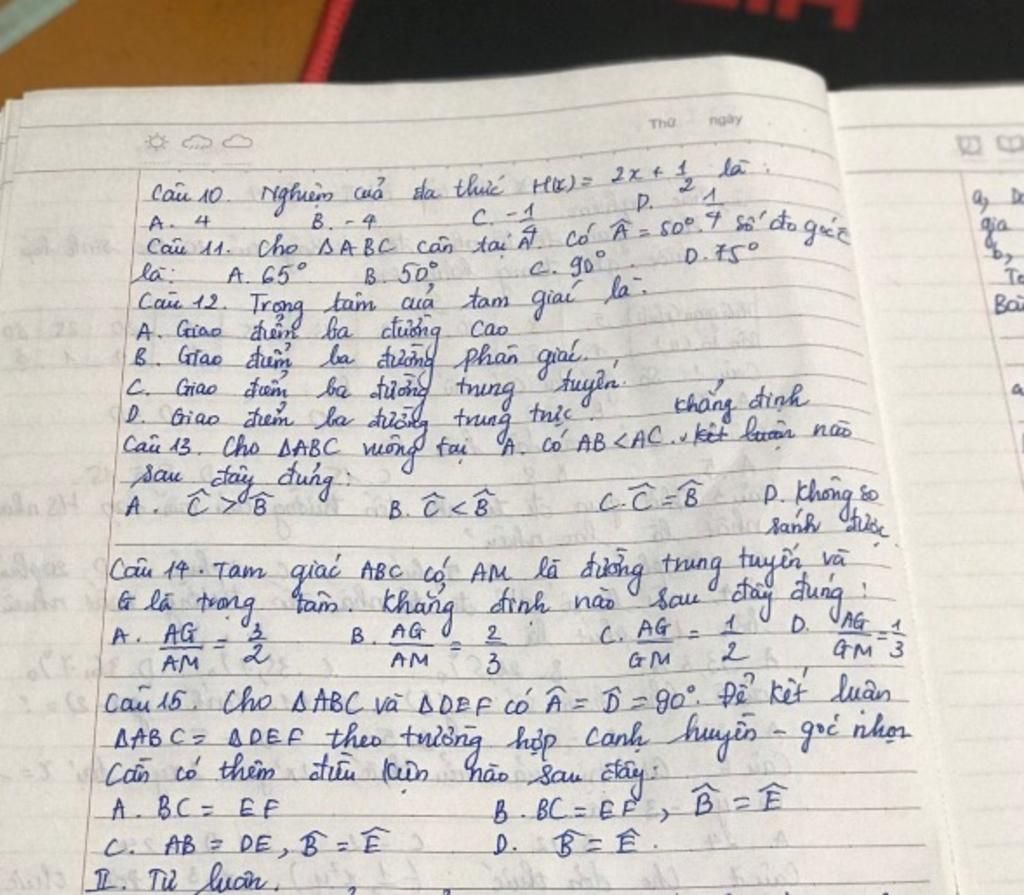 Thứ ngày
Câu 10. Nghiệm của đa thức H(x) = 2x + 1/2 là :
A. 4 B. -4 C. -1/4 D. 1/4
Câu 11. Cho ΔABC cân tại A có Â = 50°. Số đo góc C
là: A. 65° B. 50° C. 90° D. 75°
Câu 12. Trọng tâm của tam giác là:
A. Giao điểm ba đường cao
B. Giao điểm ba đường phân giác.
C. Giao điểm ba đường trung tuyến.
D. Giao điểm ba đường trung trực
khẳng định
Câu 13. Cho ΔABC vuông tại A. có AB < AC. kết luận nào
sau đây đúng:
A. Ĉ > B̂ B. Ĉ < B̂ C. Ĉ = B̂ D. Không so
sánh được
Câu 14. Tam giác ABC có AM là đường trung tuyến và
G là trọng tâm khẳng định nào sau đây đúng:
A. AG/AM = 3/2 B. AG/AM = 2/3 C. AG/GM = 1/2 D. AG/GM = 1/3
Câu 15. Cho ΔABC và ΔDEF có Â = D̂ = 90°. Để kết luận
ΔABC = ΔDEF theo trường hợp cạnh huyền - góc nhọn
Cần có thêm điều kiện nào sau đây
A. BC = EF B. BC = EF, B̂ = Ê
C. AB = DE, B̂ = Ê D. B̂ = Ê.
II. Tự luận.
a, gia
b,
Bài